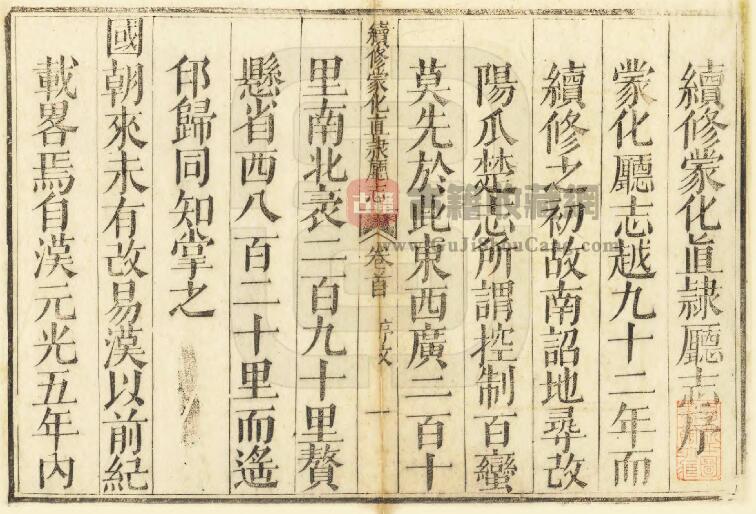 續修蒙化直隸廳志序
蒙化廳志越九十二年而
續修之初故南詔地尋改
陽瓜楚志所謂控制百蠻
莫先於此東西廣二百十
續修蒙化直隸廳志 卷首 序文 一
里南北袤二百九十里贅
懸省西八百二十里而遙
邙歸同知掌之
國朝來未有改易漢以前紀
載畧焉自漢元光五年內
古籍收藏網
www.GuJiShouCang.com